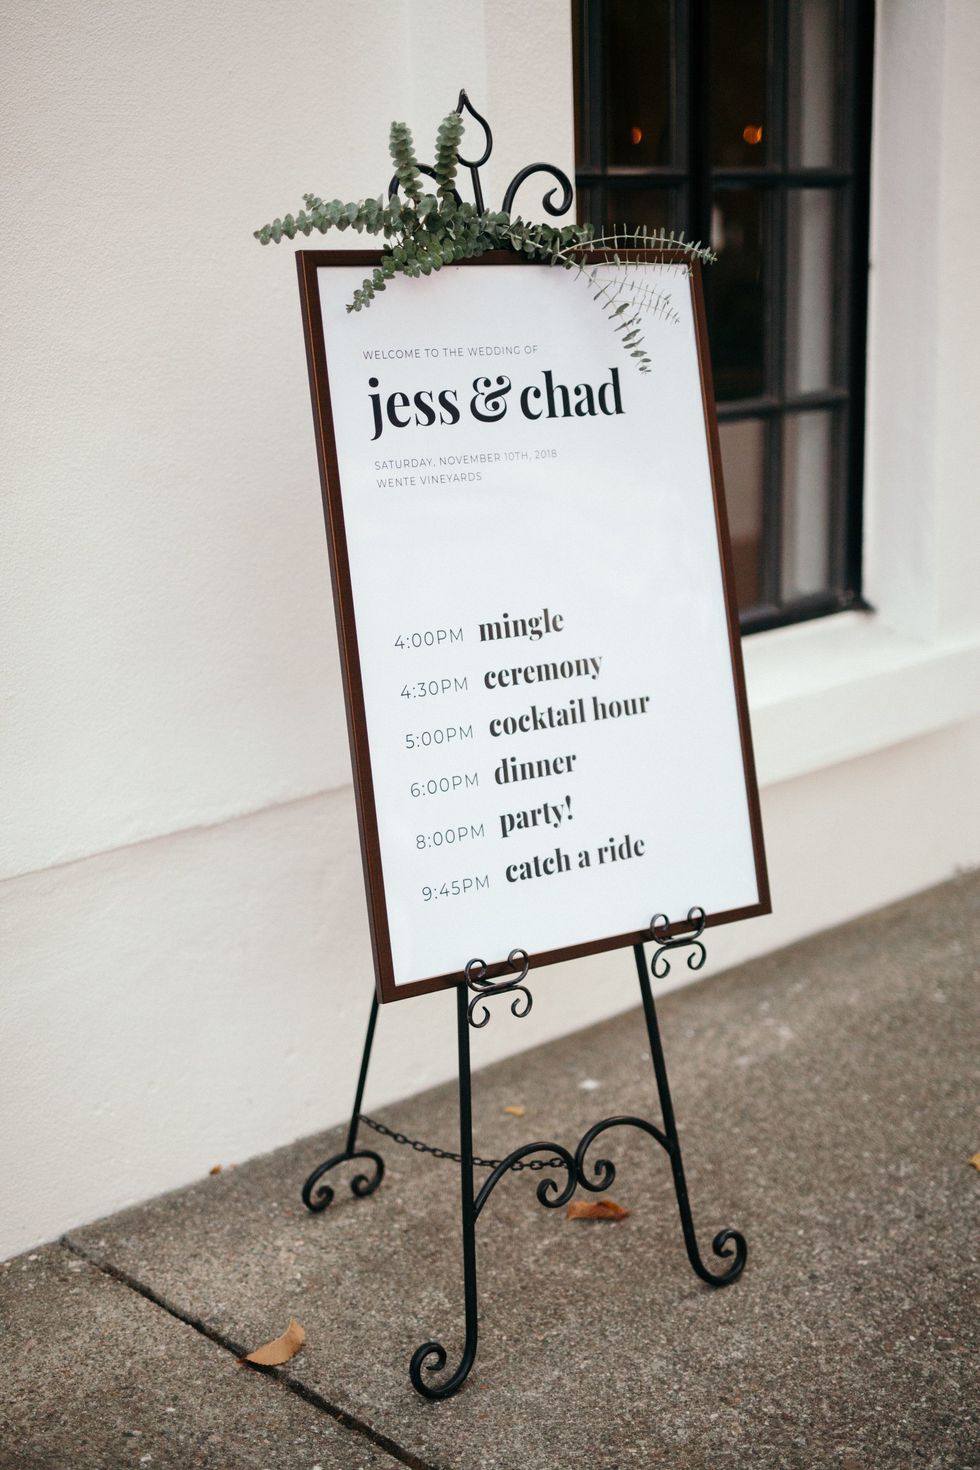 WELCOME TO THE WEDDING OF
jess & chad
SATURDAY, NOVEMBER 10TH, 2018
WENTE VINEYARDS
4:00PM mingle
4:30PM ceremony
5:00PM cocktail hour
6:00PM dinner
8:00PM party!
9:45PM catch a ride